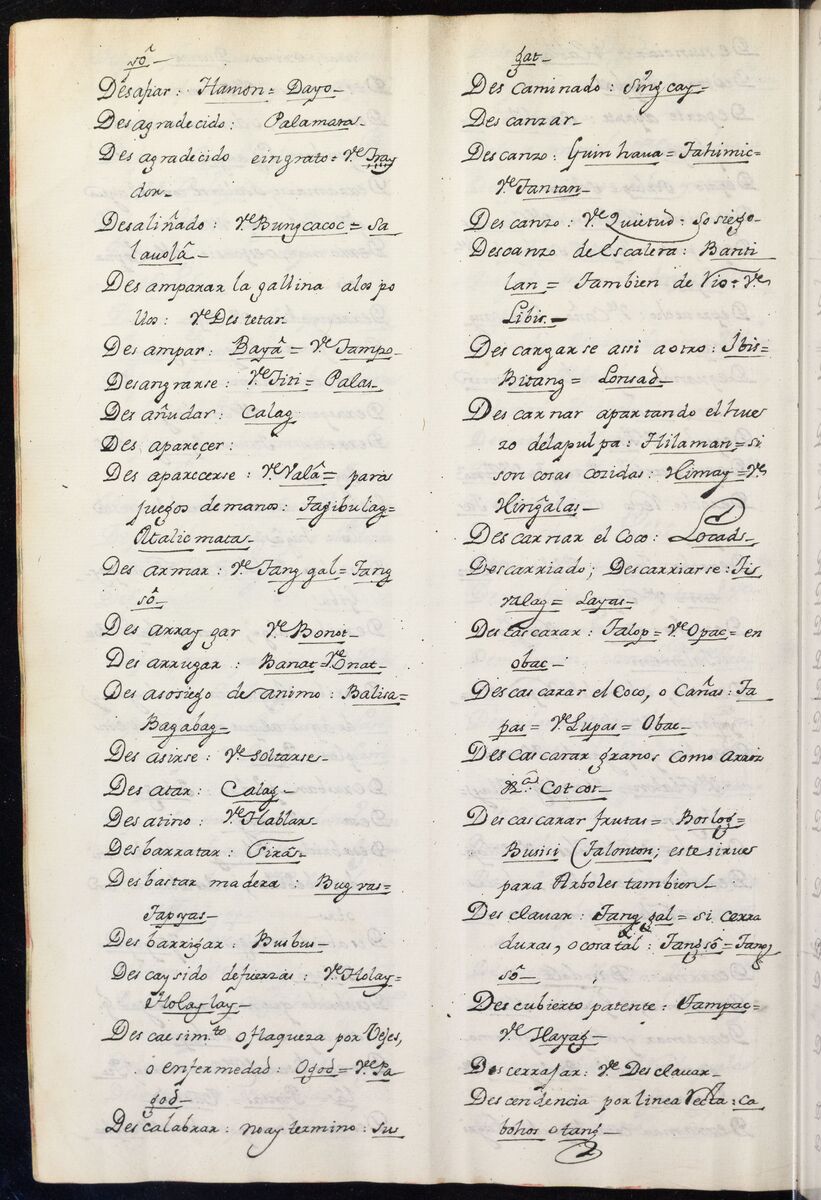 sô-
Desafiar: Hamon= Dayo-
Desagradecido: Palamara-
Desagradecido eingrato= Ve. Tray
dor-
Desaliñado: Ve. Bungcacoc= Sa
lauolâ-
Des amparar la gallina alos po
llos: Ve. Destetar
Des ampar: Bayâ= Ve. Tampo-
Desangrarse: Ve. Titi= Palas-
Des añudar: Calag
Des aparecer:
Des aparecerse: Ve. Valâ= para
juegos demanos: Tagibulag=
Atalicmata-
Des armar: Ve. Tang gal= Tang
sô-
Des arraygar Ve. Bonot-
Des arrugar: Banat= Ve. Onat-
Des asosiego de animo: Balisa=
Bagabag-
Des asirse: Ve. soltarse-
Des atar: Calag-
Des atino: Ve. Hablar-
Des barratar: Sirâ-
Des bastar madera: Bugras=
Tapyas-
Des barrigar: Busbus-
Des caysido defuerzas: Ve. Holay=
Holaylay-
Des caesimto. oflaqueza por Vejes,
o enfermedad: Ogod= Ve. Pa
god-
Des calabrar: noay termino: Su
gat-
Des caminado: Singcay-
Des canzar-
Des canzo: Guinhaua= Tahimic=
Ve. Tantan-
Des canzo: Ve. Quietud: Sosiego-
Descanzo de Escalera: Banti
lan= Tambien de Rio= Ve.
Libis-
Des cargarse assi aotro: Ibis=
Bitang= Lonsad-
Des carnar apartando elhue
zo delapulpa: Hilaman= si
son cosas cozidas: Himay= Ve.
Hingalas-
Des carnar el Coco: Locad-
Descarriado; Descarriarse: Tis
valag= Layas-
Des cascarar: Talop= Ve. Opac= en
obac-
Des cascarar el Coco, o Cañas: Ta
pas= Ve. Lupas= Obac-
Des cascarar granos como arroz
&a. Cotcot-
Des cascarar frutas= Borlog=
Busisi (Talonton; este sirue
para Arboles tambien)-
Des clauar: Tang gal= si cerra
duras, o cosa tal: Tangsô= Tang
sô-
Des cubierto patente: Tampac=
Ve. Hayag-
Des cerrajar: Ve. Des clauar-
Des cendencia por linea Recta: ca
bohos otang-